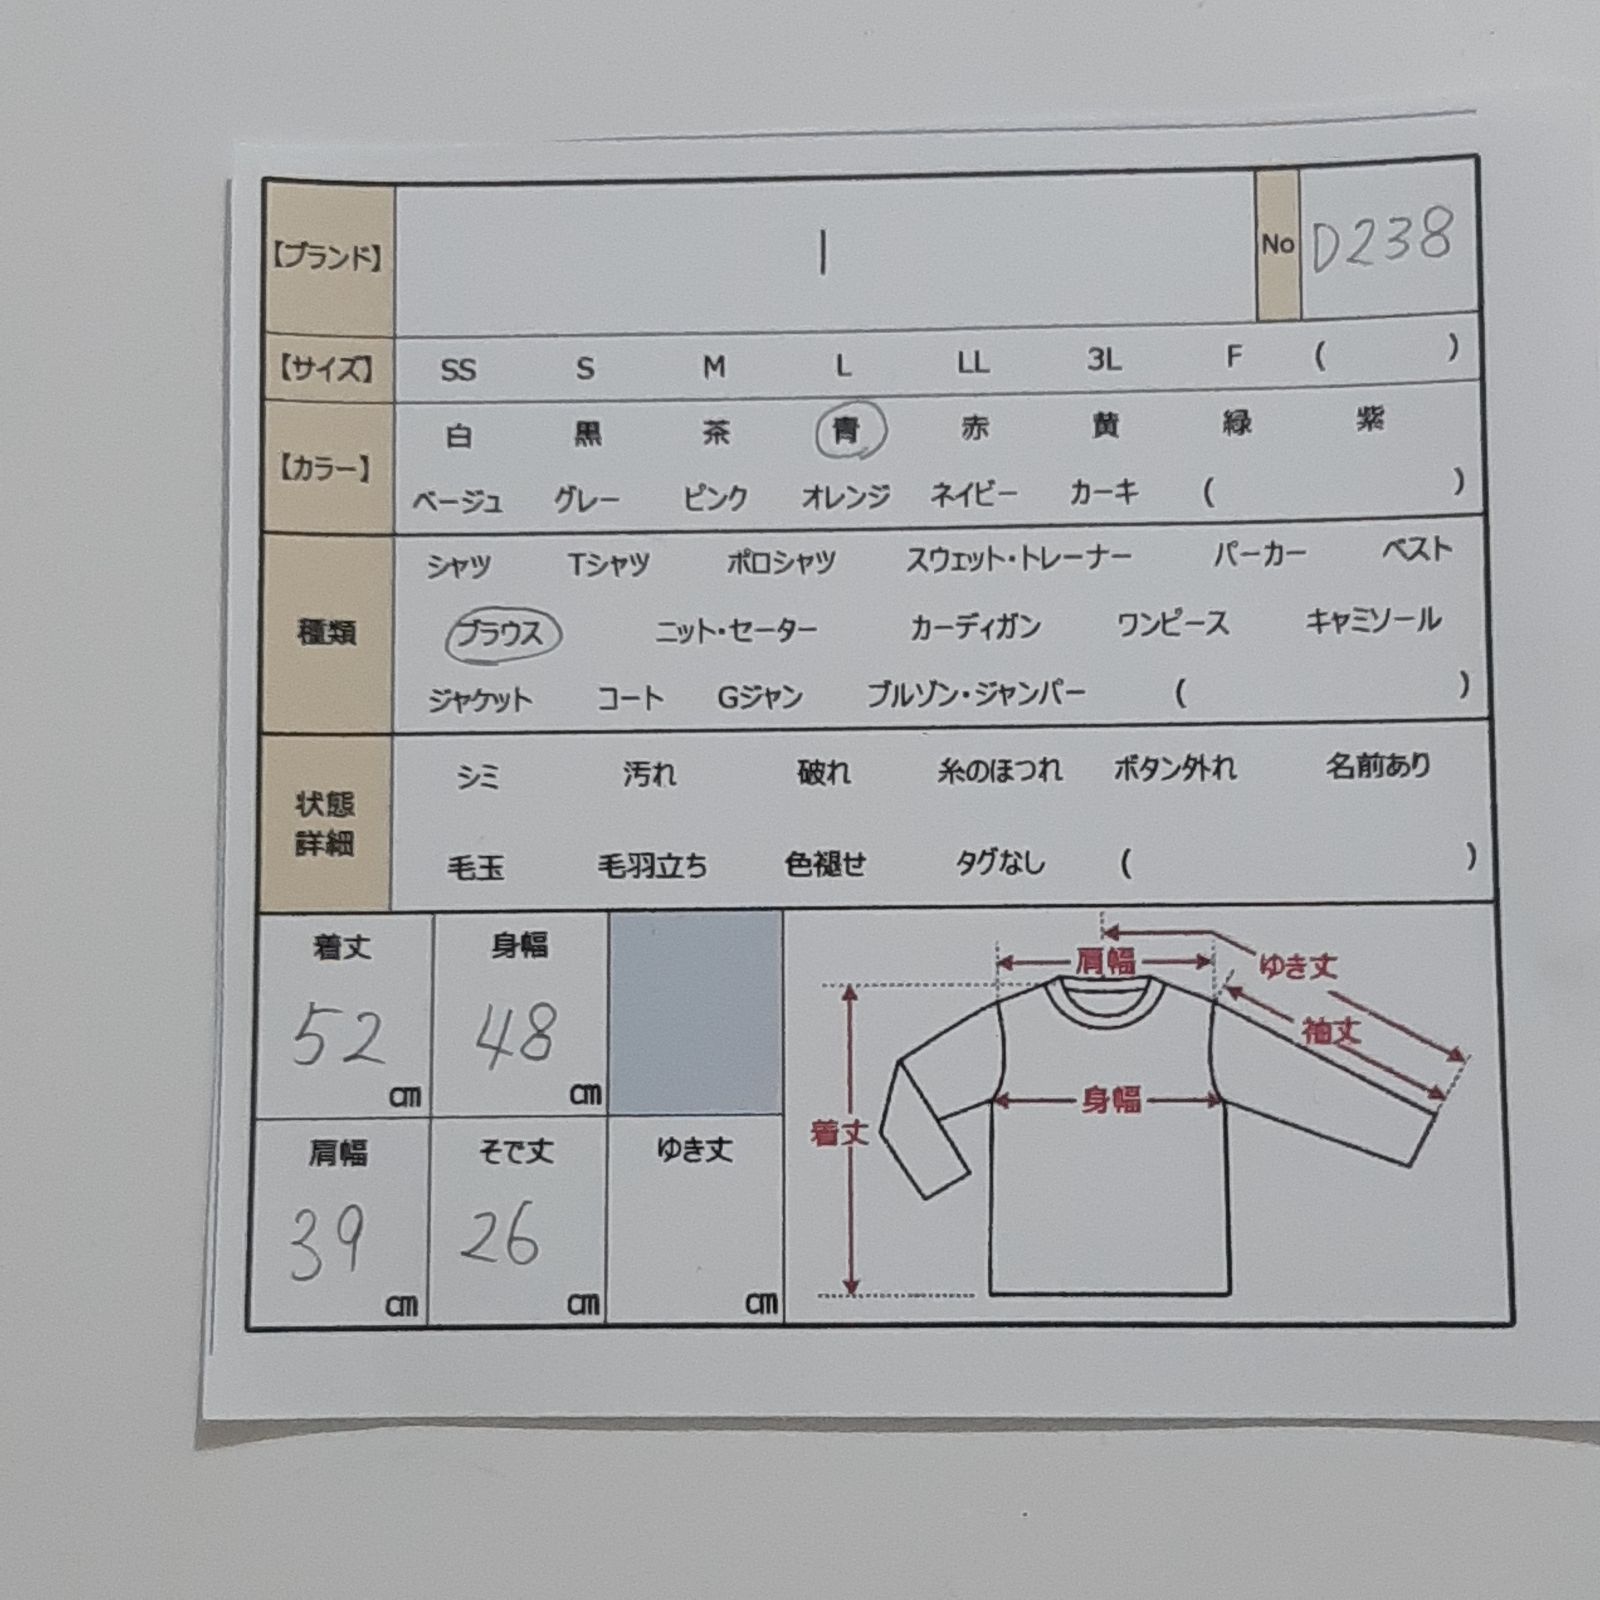 【ブランド】 | No D238
【サイズ】 SS S M L LL 3L F ( )
【カラー】
白 黒 茶 青 赤 黄 緑 紫
ベージュ グレー ピンク オレンジ ネイビー カーキ ( )
種類
シャツ Tシャツ ポロシャツ スウェット・トレーナー パーカー ベスト
ブラウス ニット・セーター カーディガン ワンピース キャミソール
ジャケット コート Gジャン ブルゾン・ジャンパー ( )
状態
詳細
シミ 汚れ 破れ 糸のほつれ ボタン外れ 名前あり
毛玉 毛羽立ち 色褪せ タグなし ( )
着丈 身幅
52 48
cm cm
肩幅 そで丈 ゆき丈
39 26
cm cm cm
肩幅
ゆき丈
袖丈
身幅
着丈